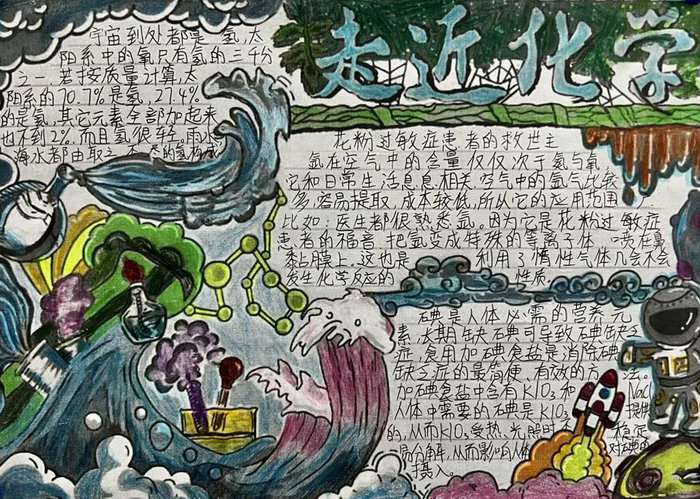 走近化学
宇宙到处都是氢,太
阳系中的氧只有氢的三千分
之一若按质量计算,太
阳系的70.7%是氢,27.4%
的是氦,其它元素全部加起来
也不到2%.而且氢很轻.雨水
海水都由取之
花粉过敏症患者的救世主
氩在空气中的含量仅仅次于氮与氧
它和日常生活息息相关.空气中的氩气比较
多,容易提取,成本较低,所以它的应用范围
比如,医生都很熟悉氩。因为它是花粉过敏症
患者的福音.把氩变成特殊的等离子体 喷在鼻
黏膜上.这也是 利用了惰性气体几会不会
发生化学反应的 性质
碘是人体必需的营养元
素,长期缺碘可导致碘缺乏
症,食用加碘食盐是消除碘
缺乏症的最简便,有效的方 法。
加碘食盐中含有KIO₃和 NaCl
人体中需要的碘是KIO₃ 提供
的,从而KIO₃受热,光照时 稳定
易分解,从而影响人体 对碘的
摄入。